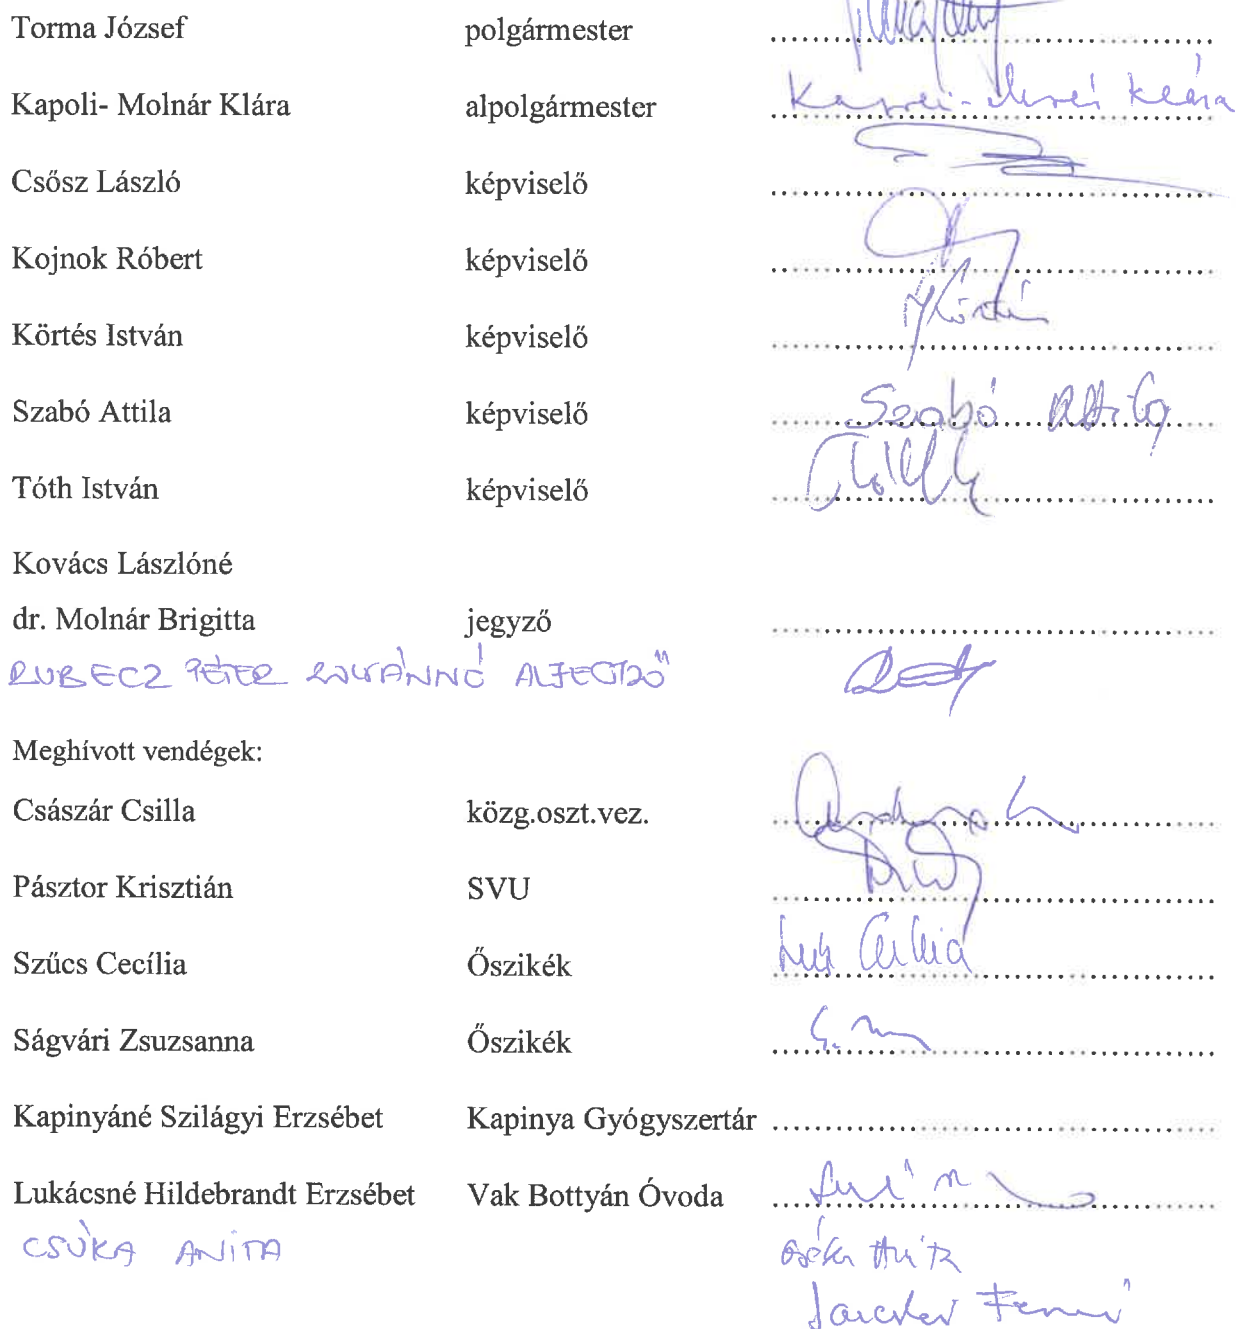 Torma József polgármester ........................................
Kapoli- Molnár Klára alpolgármester ........................................ Klára
Csősz László képviselő ........................................
Kojnok Róbert képviselő ........................................
Körtés István képviselő ........................................
Szabó Attila képviselő ........................................ Szabó Attila
Tóth István képviselő ........................................
Kovács Lászlóné
dr. Molnár Brigitta jegyző ........................................
RUBECZ PÉTER ZOLTÁNNÉ ALJEGYZŐ
Meghívott vendégek:
Császár Csilla közg.oszt.vez. ........................................
Pásztor Krisztián SVU ........................................
Szűcs Cecília Őszikék ........................................
Ságvári Zsuzsanna Őszikék ........................................
Kapinyáné Szilágyi Erzsébet Kapinya Gyógyszertár ........................................
Lukácsné Hildebrandt Erzsébet Vak Bottyán Óvoda ........................................
CSÓKA ANITA